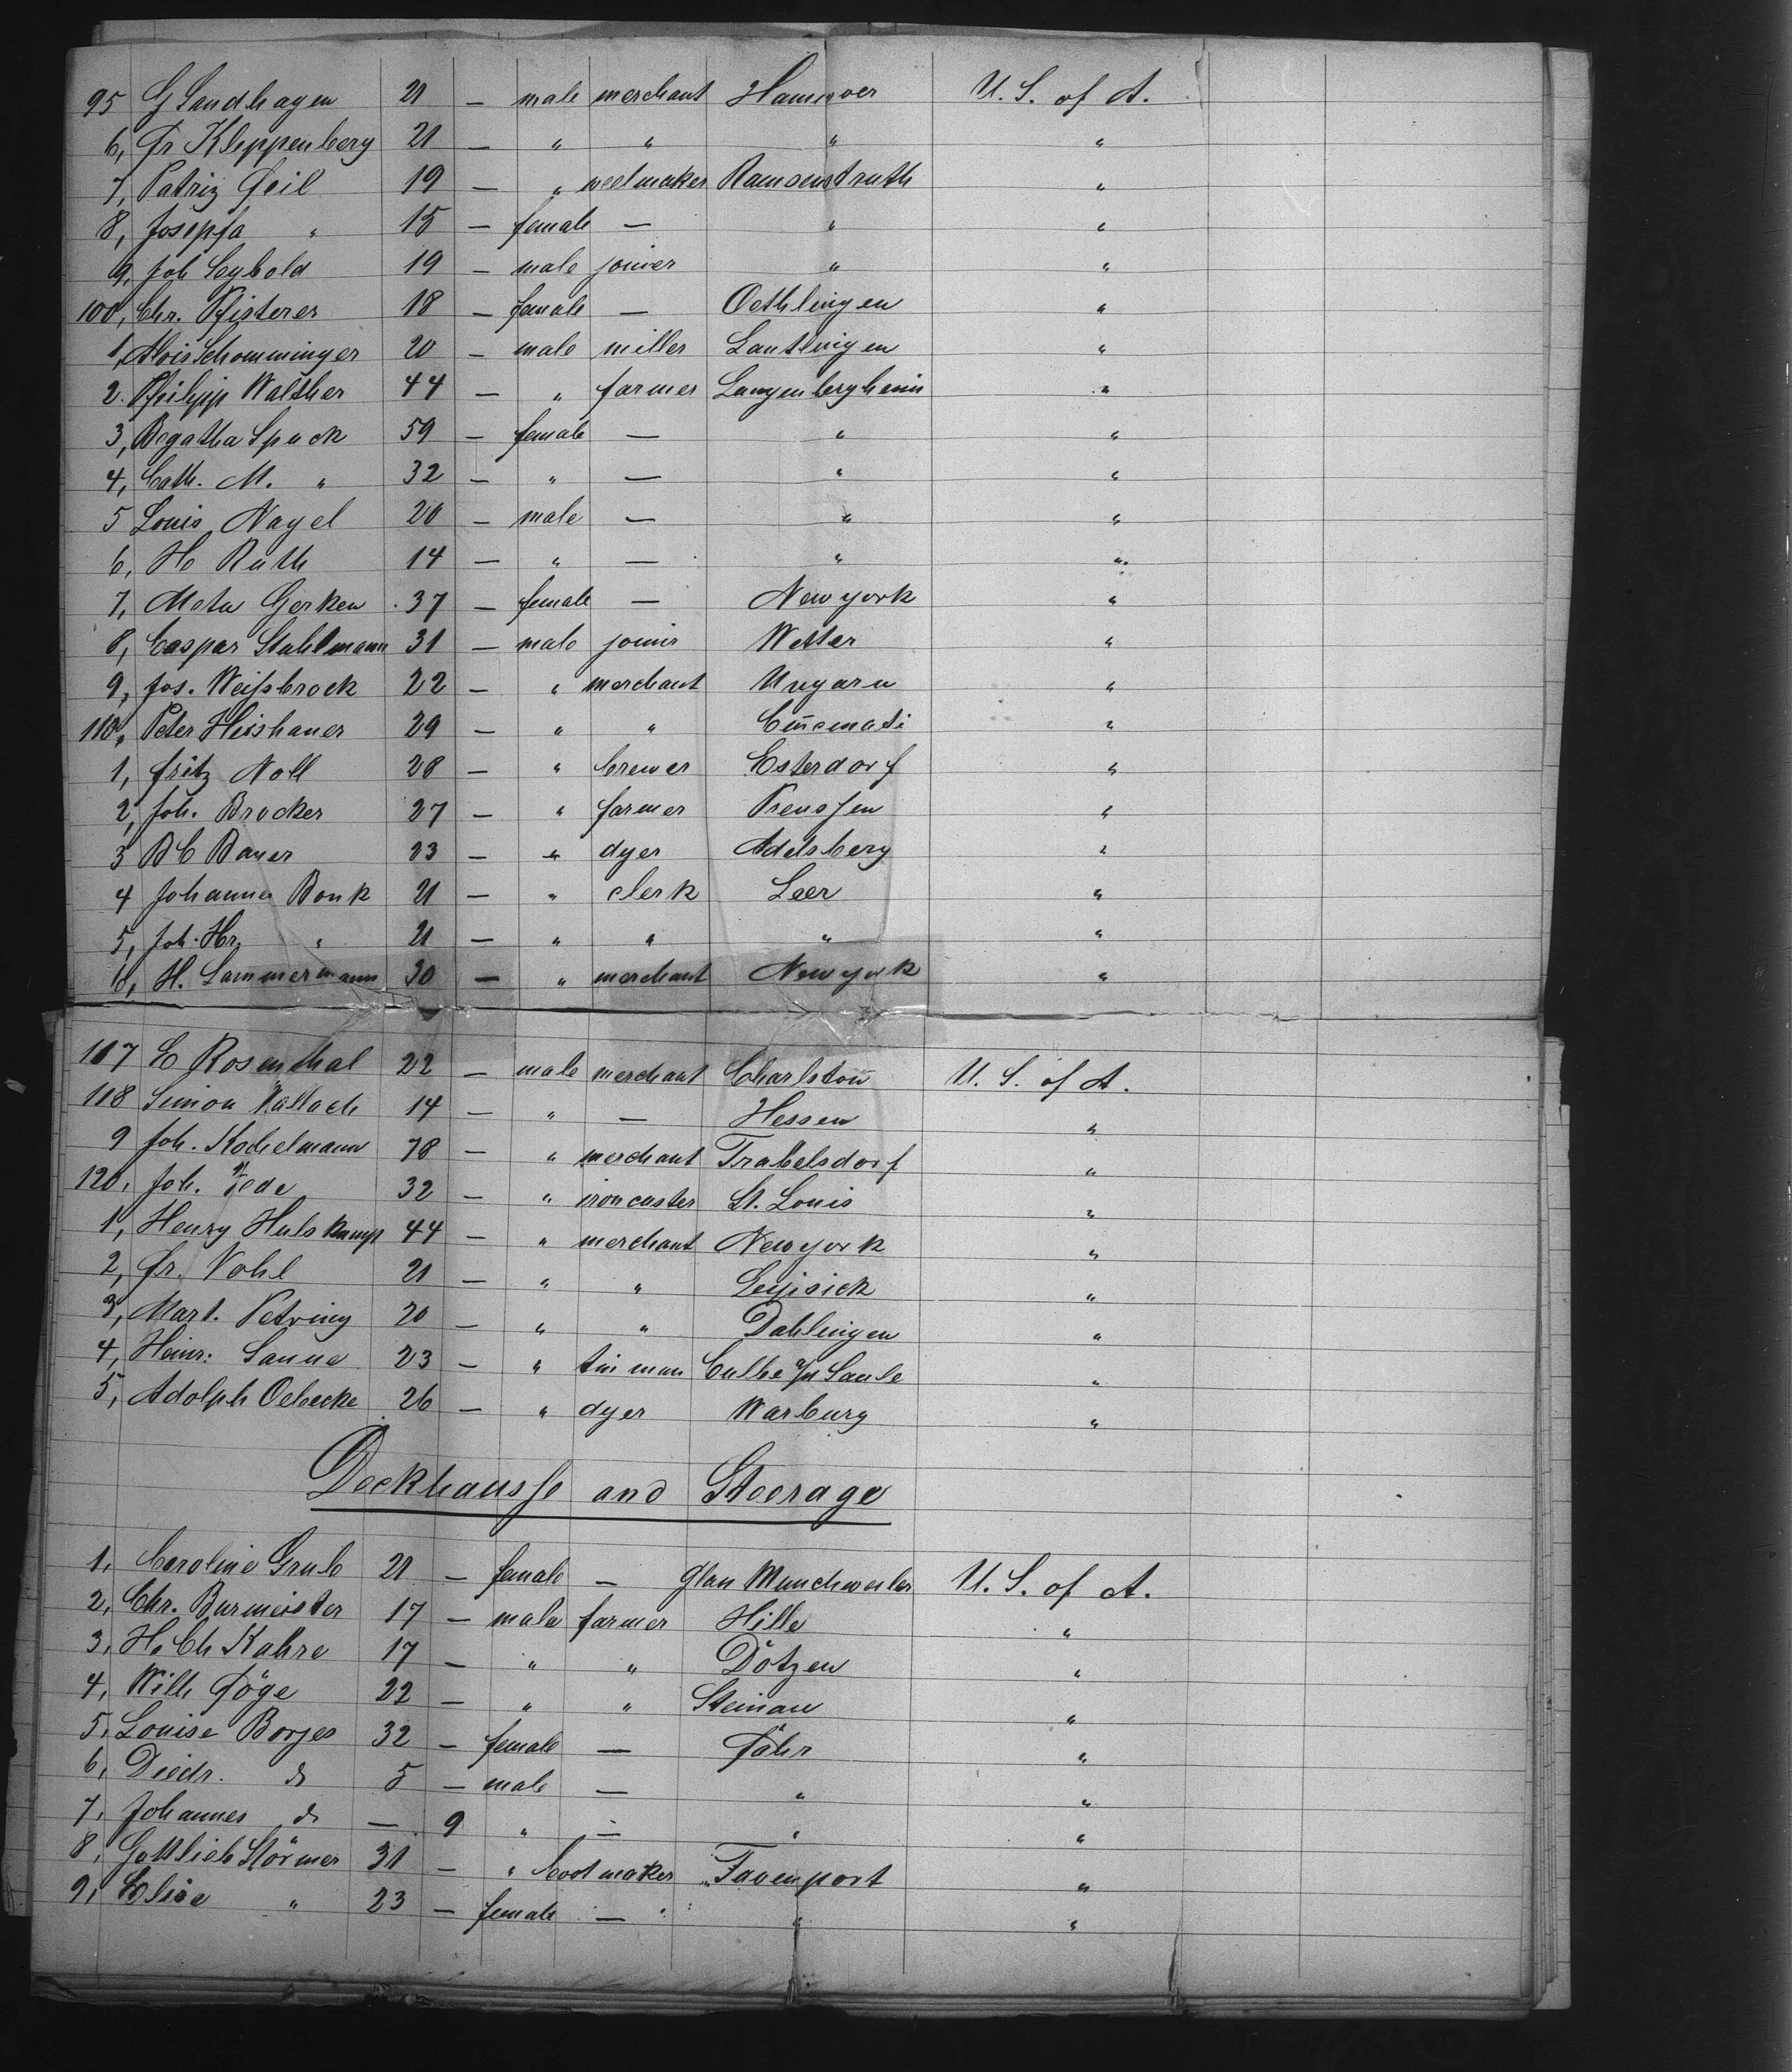 95 G Sandhagen 21 — male merchant Hannover U. S. of A.
6, Fr Kleppenberg 21 — " " " "
7, Patriz Feil 19 — " weelmaker Ramsenstruth "
8, Josepfa " 15 — female — " "
9, Joh Seybold 19 — male joiner " "
100, Chr. Pfisterer 18 — female — Oethlingen "
1, Alois Schomminger 20 — male miller Lautlingen "
2. Philipp Walther 44 — " farmer Langenbergheim "
3, Begatha Spuck 59 — female — " "
4, Cath. M. " 32 — " — " "
5 Louis Nagel 20 — male — " "
6, H Ruth 14 — " — " "
7, Meta Gerken 37 — female — New york "
8, Caspar Stuhlmann 31 — male joinir Wetter "
9, Jos. Weißbrock 22 — " merchant Ungarn "
110, Peter Heishauer 29 — " " Cincinati "
1, Fritz Noll 28 — " brewer Esterdorf "
2, Joh. Brocker 27 — " farmer Preussen "
3 B C Bauer 23 — " dyer Adelsberg "
4 Johannes Bonk 21 — " clerk Leer "
5, Joh. Hr. " 21 — " " " "
6, H. Lammermann 30 — " merchant New york "
117 E Rosenthal 22 — male merchant Charlston U. S. of A.
118 Simon Wallach 14 — " — Hessen "
9 Joh. Kochelmann 78 — " merchant Trabelsdorf "
120, Joh. Tede 32 — " ironcaster St. Louis "
1, Henry Hulskamp 44 — " merchant New york "
2, Fr. Vohl 21 — " " "
3, Mart. Petring 20 — " " Dahlingen "
4, Heinr: Sanne 23 — " tin man Calbe a/d Saale "
5, Adolph Oebecke 26 — " dyer Warburg "
Deckhausse and Steerage
1, Caroline Grub 21 — female — Glan Munchweiler U. S. of A.
2, Chr. Burmeister 17 — male farmer Hille "
3, H. Ch Kahre 17 — " " Dötzen "
4, Wilh Föge 22 — " " Steinau "
5, Louise Borjes 32 — female — Fähr "
6, Diedr. do 5 — male — " "
7, Johannes do — 9 " — " "
8, Gottlieb Störmer 31 — " bootmaker Favenport "
9, Elise " 23 — female — " "